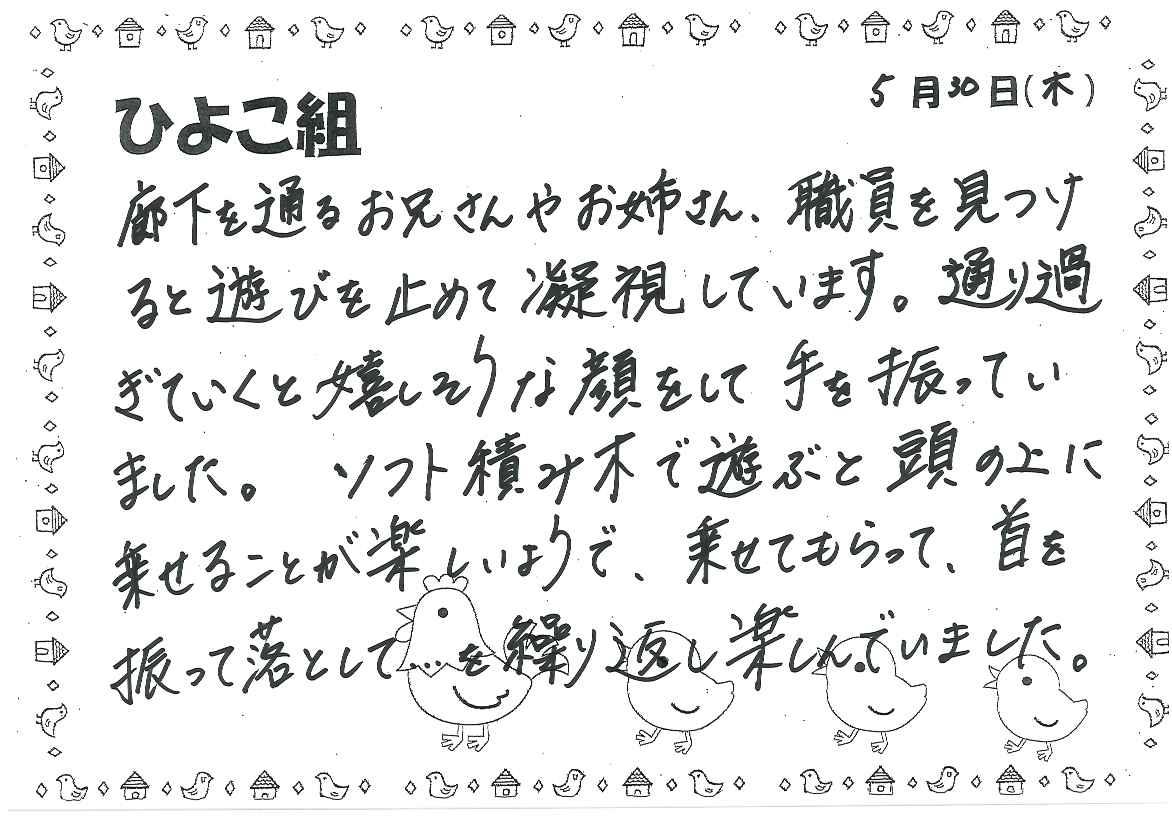 5月30日(木)
ひよこ組
廊下を通るお兄さんやお姉さん、職員を見つけ
ると遊びを止めて凝視しています。通り過
ぎていくと嬉しそうな顔をして手を振ってい
ました。 ソフト積み木で遊ぶと頭の上に
乗せることが楽しいようで、乗せてもらって、首を
振って落として…を繰り返し楽しんでいました。